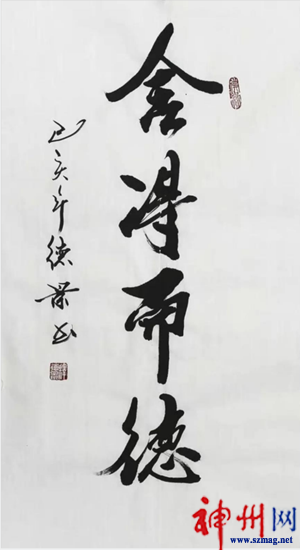 舍得而德
己亥年德荣书
神州网
www.szmag.net